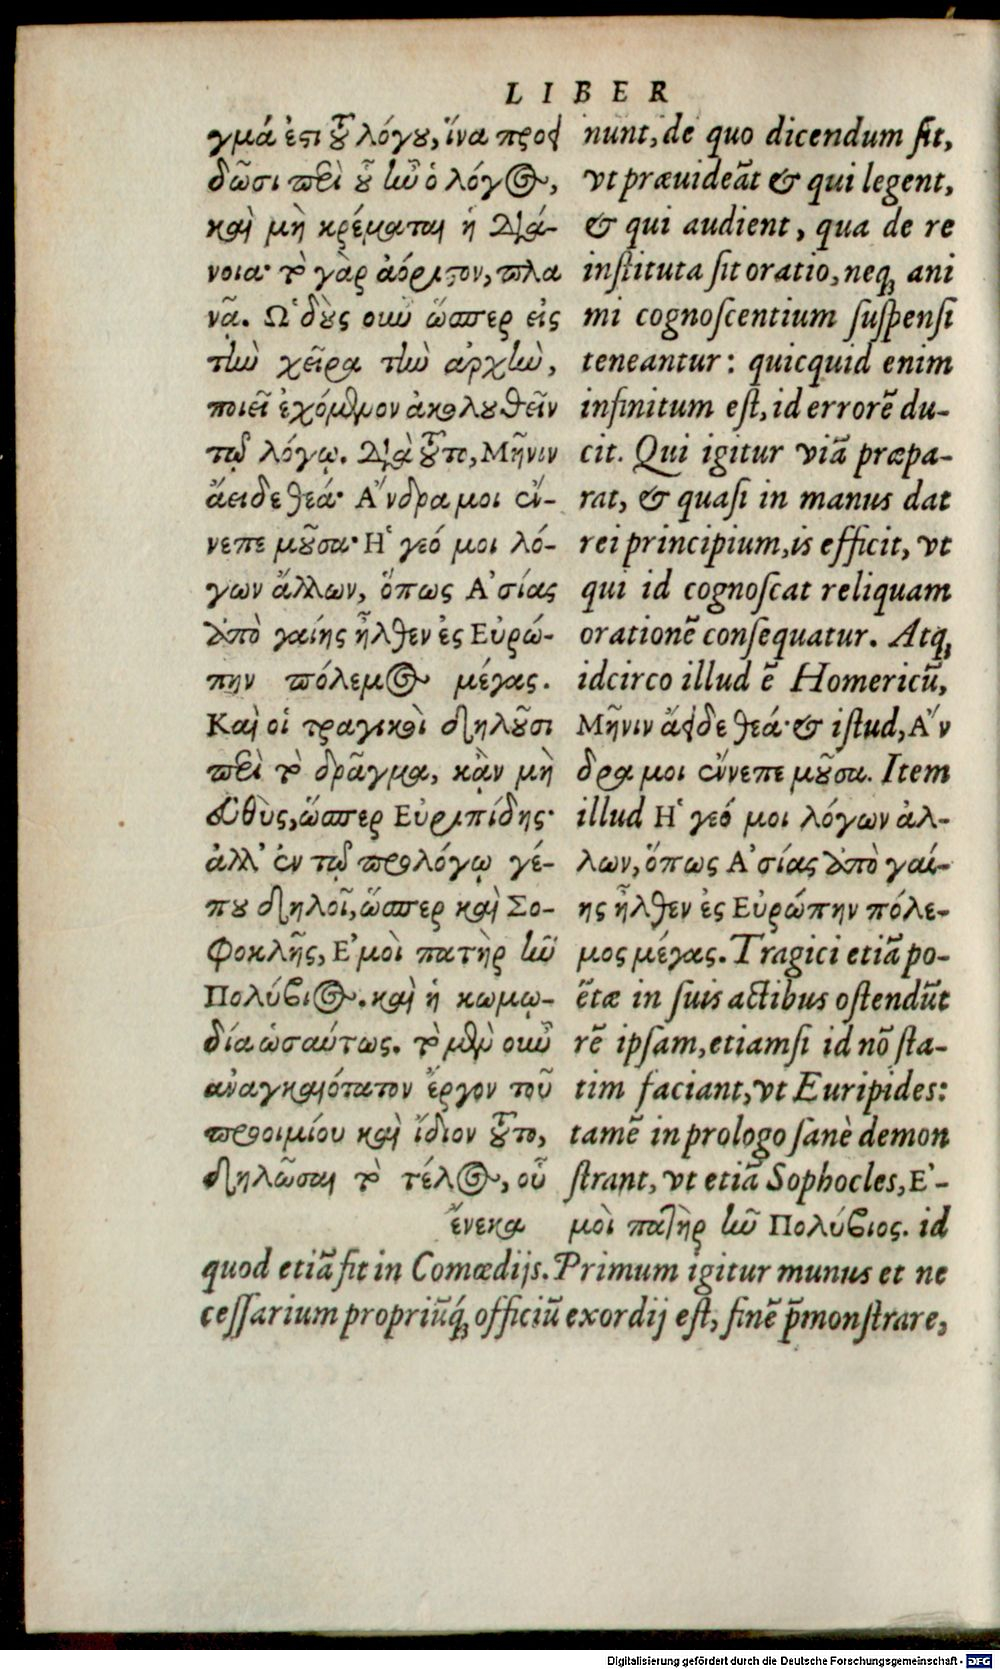 LIBER
γμά ἐστι τοῦ λόγου, ἵνα προει
δῶσι περὶ οὗ ἦν ὁ λόγος,
καὶ μὴ κρέμαται ἡ διά-
νοια· τὸ γὰρ ἀόριστον, πλα
νᾷ. Ὁ δοὺς οὖν ὥσπερ εἰς
τὴν χεῖρα τὴν ἀρχὴν,
ποιεῖ ἐχόμενον ἀκολουθεῖν
τῷ λόγῳ. Διὰ τοῦτο, Μῆνιν
ἄειδε θεά· Ἄνδρα μοι ἔν-
νεπε μοῦσα· Ἡ γεό μοι λό-
γων ἄλλων, ὅπως Ἀσίας
ἀπὸ γαίης ἦλθεν ἐς Εὐρώ-
πην πόλεμος μέγας.
Καὶ οἱ τραγικοὶ δηλοῦσι
περὶ τὸ δρᾶγμα, κἂν μὴ
εὐθὺς, ὥσπερ Εὐριπίδης·
ἀλλ' ἐν τῷ προλόγῳ γέ-
που δηλοῖ, ὥσπερ καὶ Σο-
φοκλῆς, Ἐμοὶ πατὴρ ἦν
Πολύβιος. καὶ ἡ κωμῳ-
δία ὡσαύτως. τὸ μὲν οὖν
ἀναγκαιότατον ἔργον τοῦ
προοιμίου καὶ ἴδιον τοῦτο,
δηλῶσαι τὸ τέλος, οὗ
ἕνεκα
nunt, de quo dicendum sit,
vt præuideãt & qui legent,
& qui audient, qua de re
instituta sit oratio, neq; ani
mi cognoscentium suspensi
teneantur: quicquid enim
infinitum est, id errorẽ du-
cit. Qui igitur viã præpa-
rat, & quasi in manus dat
rei principium, is efficit, vt
qui id cognoscat reliquam
orationẽ consequatur. Atq;
idcirco illud ẽ Homericũ,
Μῆνιν ἄειδε θεά· & istud, Ἄν
δρα μοι ἔννεπε μοῦσα. Item
illud Ἡ γεό μοι λόγων ἀλ-
λων, ὅπως Ἀσίας ἀπὸ γαί-
ης ἦλθεν ἐς Εὐρώπην πόλε-
μος μέγας. Tragici etiã po-
ëtæ in suis actibus ostendũt
rẽ ipsam, etiamsi id nõ sta-
tim faciant, vt Euripides:
tamẽ in prologo sanè demon
strant, vt etiã Sophocles, Ἐ-
μοὶ πατὴρ ἦν Πολύβιος. id
quod etiã fit in Comœdijs. Primum igitur munus et ne
cessarium propriũq́; officiũ exordij est, finẽ p̃monstrare,
Digitalisierung gefördert durch die Deutsche Forschungsgemeinschaft - DFG